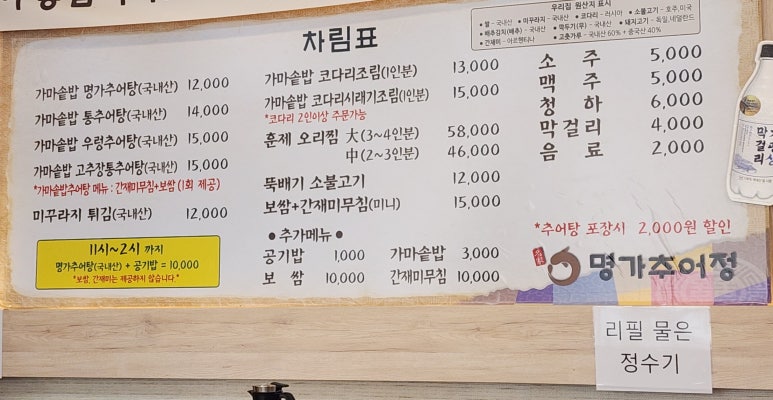 차림표
우리집 원산지 표시
• 쌀 - 국내산 • 미꾸라지 - 국내산 • 코다리 - 러시아 • 소불고기 - 호주,미국
• 배추김치(배추) - 국내산 • 깍두기(무) - 국내산 • 돼지고기 - 독일,네덜란드
• 간재미 - 아르헨티나 • 고춧가루 - 국내산 60% + 중국산 40%
가마솥밥 명가추어탕(국내산) 12,000
가마솥밥 통추어탕(국내산) 14,000
가마솥밥 우렁추어탕(국내산) 15,000
가마솥밥 고추장통추어탕(국내산) 15,000
*가마솥밥추어탕 메뉴 : 간재미무침+보쌈 (1회 제공)
미꾸라지 튀김(국내산) 12,000
11시~2시 까지
명가추어탕(국내산) + 공기밥 = 10,000
*보쌈, 간재미는 제공하지 않습니다.*
가마솥밥 코다리조림(1인분) 13,000
가마솥밥 코다리시래기조림(1인분) 15,000
*코다리 2인이상 주문가능
훈제 오리찜 大(3~4인분) 58,000
中(2~3인분) 46,000
뚝배기 소불고기 12,000
보쌈+간재미무침(미니) 15,000
● 추가메뉴 ●
공기밥 1,000 가마솥밥 3,000
보 쌈 10,000 간재미무침 10,000
소 주 5,000
맥 주 5,000
청 하 6,000
막걸리 4,000
음 료 2,000
*추어탕 포장시 2,000원 할인
명가추어정
리필 물은
정수기